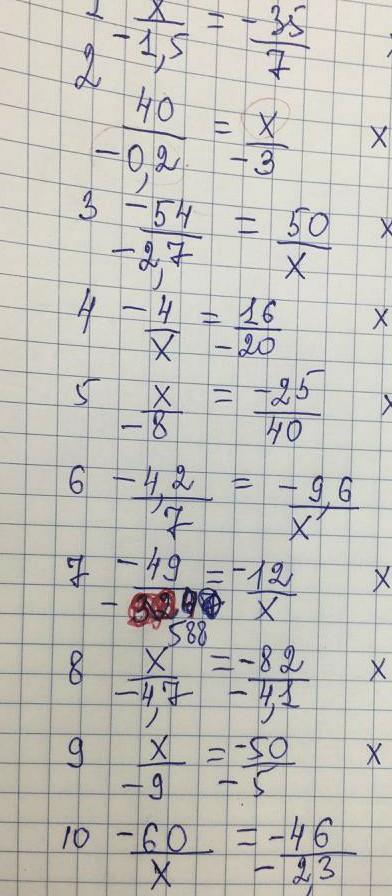 1 x/-1,5 = -35/7
2 40/-0,2 = x/-3 x
3 -54/-2,7 = 50/x
4 -4/x = 16/-20 x
5 x/-8 = -25/40 x
6 -4,2/7 = -9,6/x
7 -49/-588 = -12/x x
8 x/-4,7 = -82/-4,1 x
9 x/-9 = -50/-5 x
10 -60/x = -46/-23